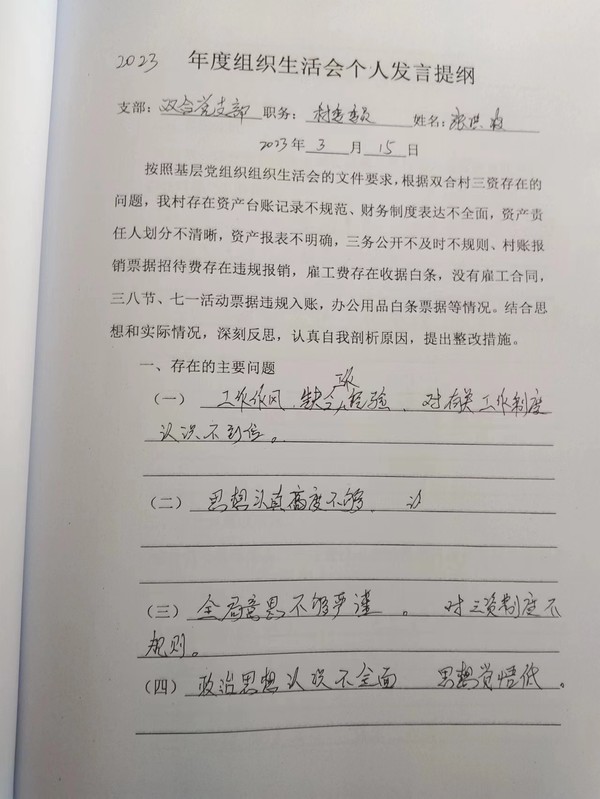 2023 年度组织生活会个人发言提纲
支部：双合党支部 职务：村委委员 姓名：张洪
2023年 3 月 15 日
按照基层党组织组织生活会的文件要求，根据双合村三资存在的
问题，我村存在资产台账记录不规范、财务制度表达不全面，资产责
任人划分不清晰，资产报表不明确，三务公开不及时不规则、村账报
销票据招待费存在违规报销，雇工费存在收据白条，没有雇工合同，
三八节、七一活动票据违规入账，办公用品白条票据等情况。结合思
想和实际情况，深刻反思，认真自我剖析原因，提出整改措施。
一、存在的主要问题
（一） 工作作风、缺乏经验、对有关工作制度
认识不到位。
（二） 思想认真高度不够、
（三） 全局意思不够严谨。 对三资制度不
规则。
（四） 政治思想认识不全面 思想觉悟低。